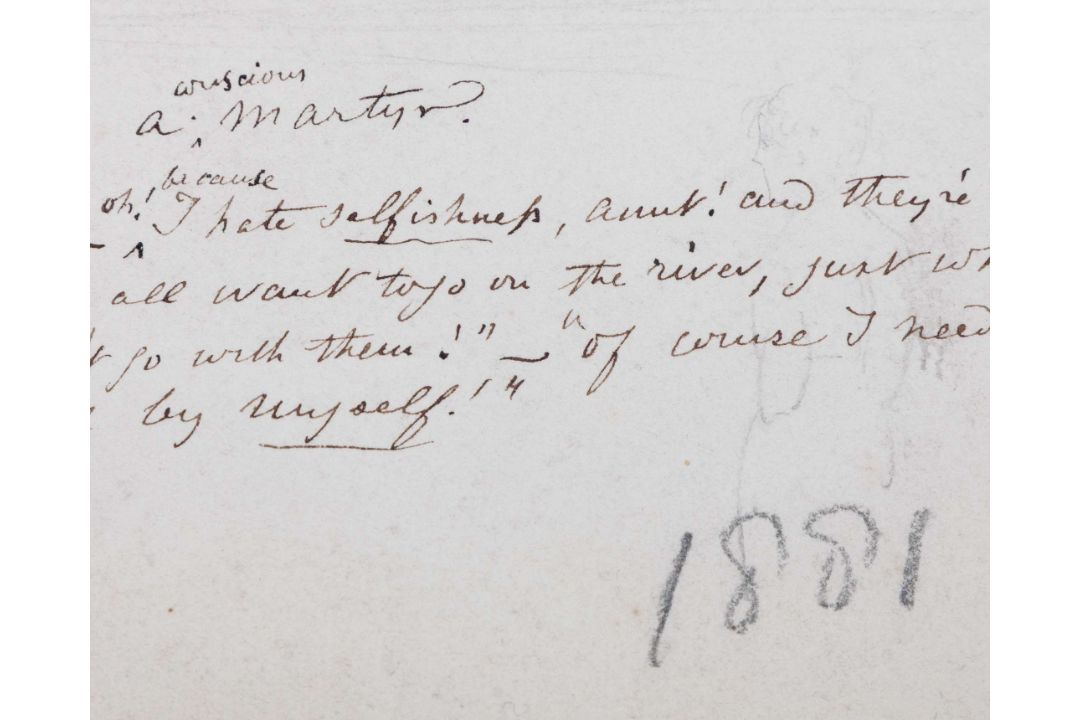 conscious
a martyr.
because
oh! I hate selfishness, aunt! and they're
all want to go on the river, just wh
t go with them!" — "of course I need
by myself!"
1881